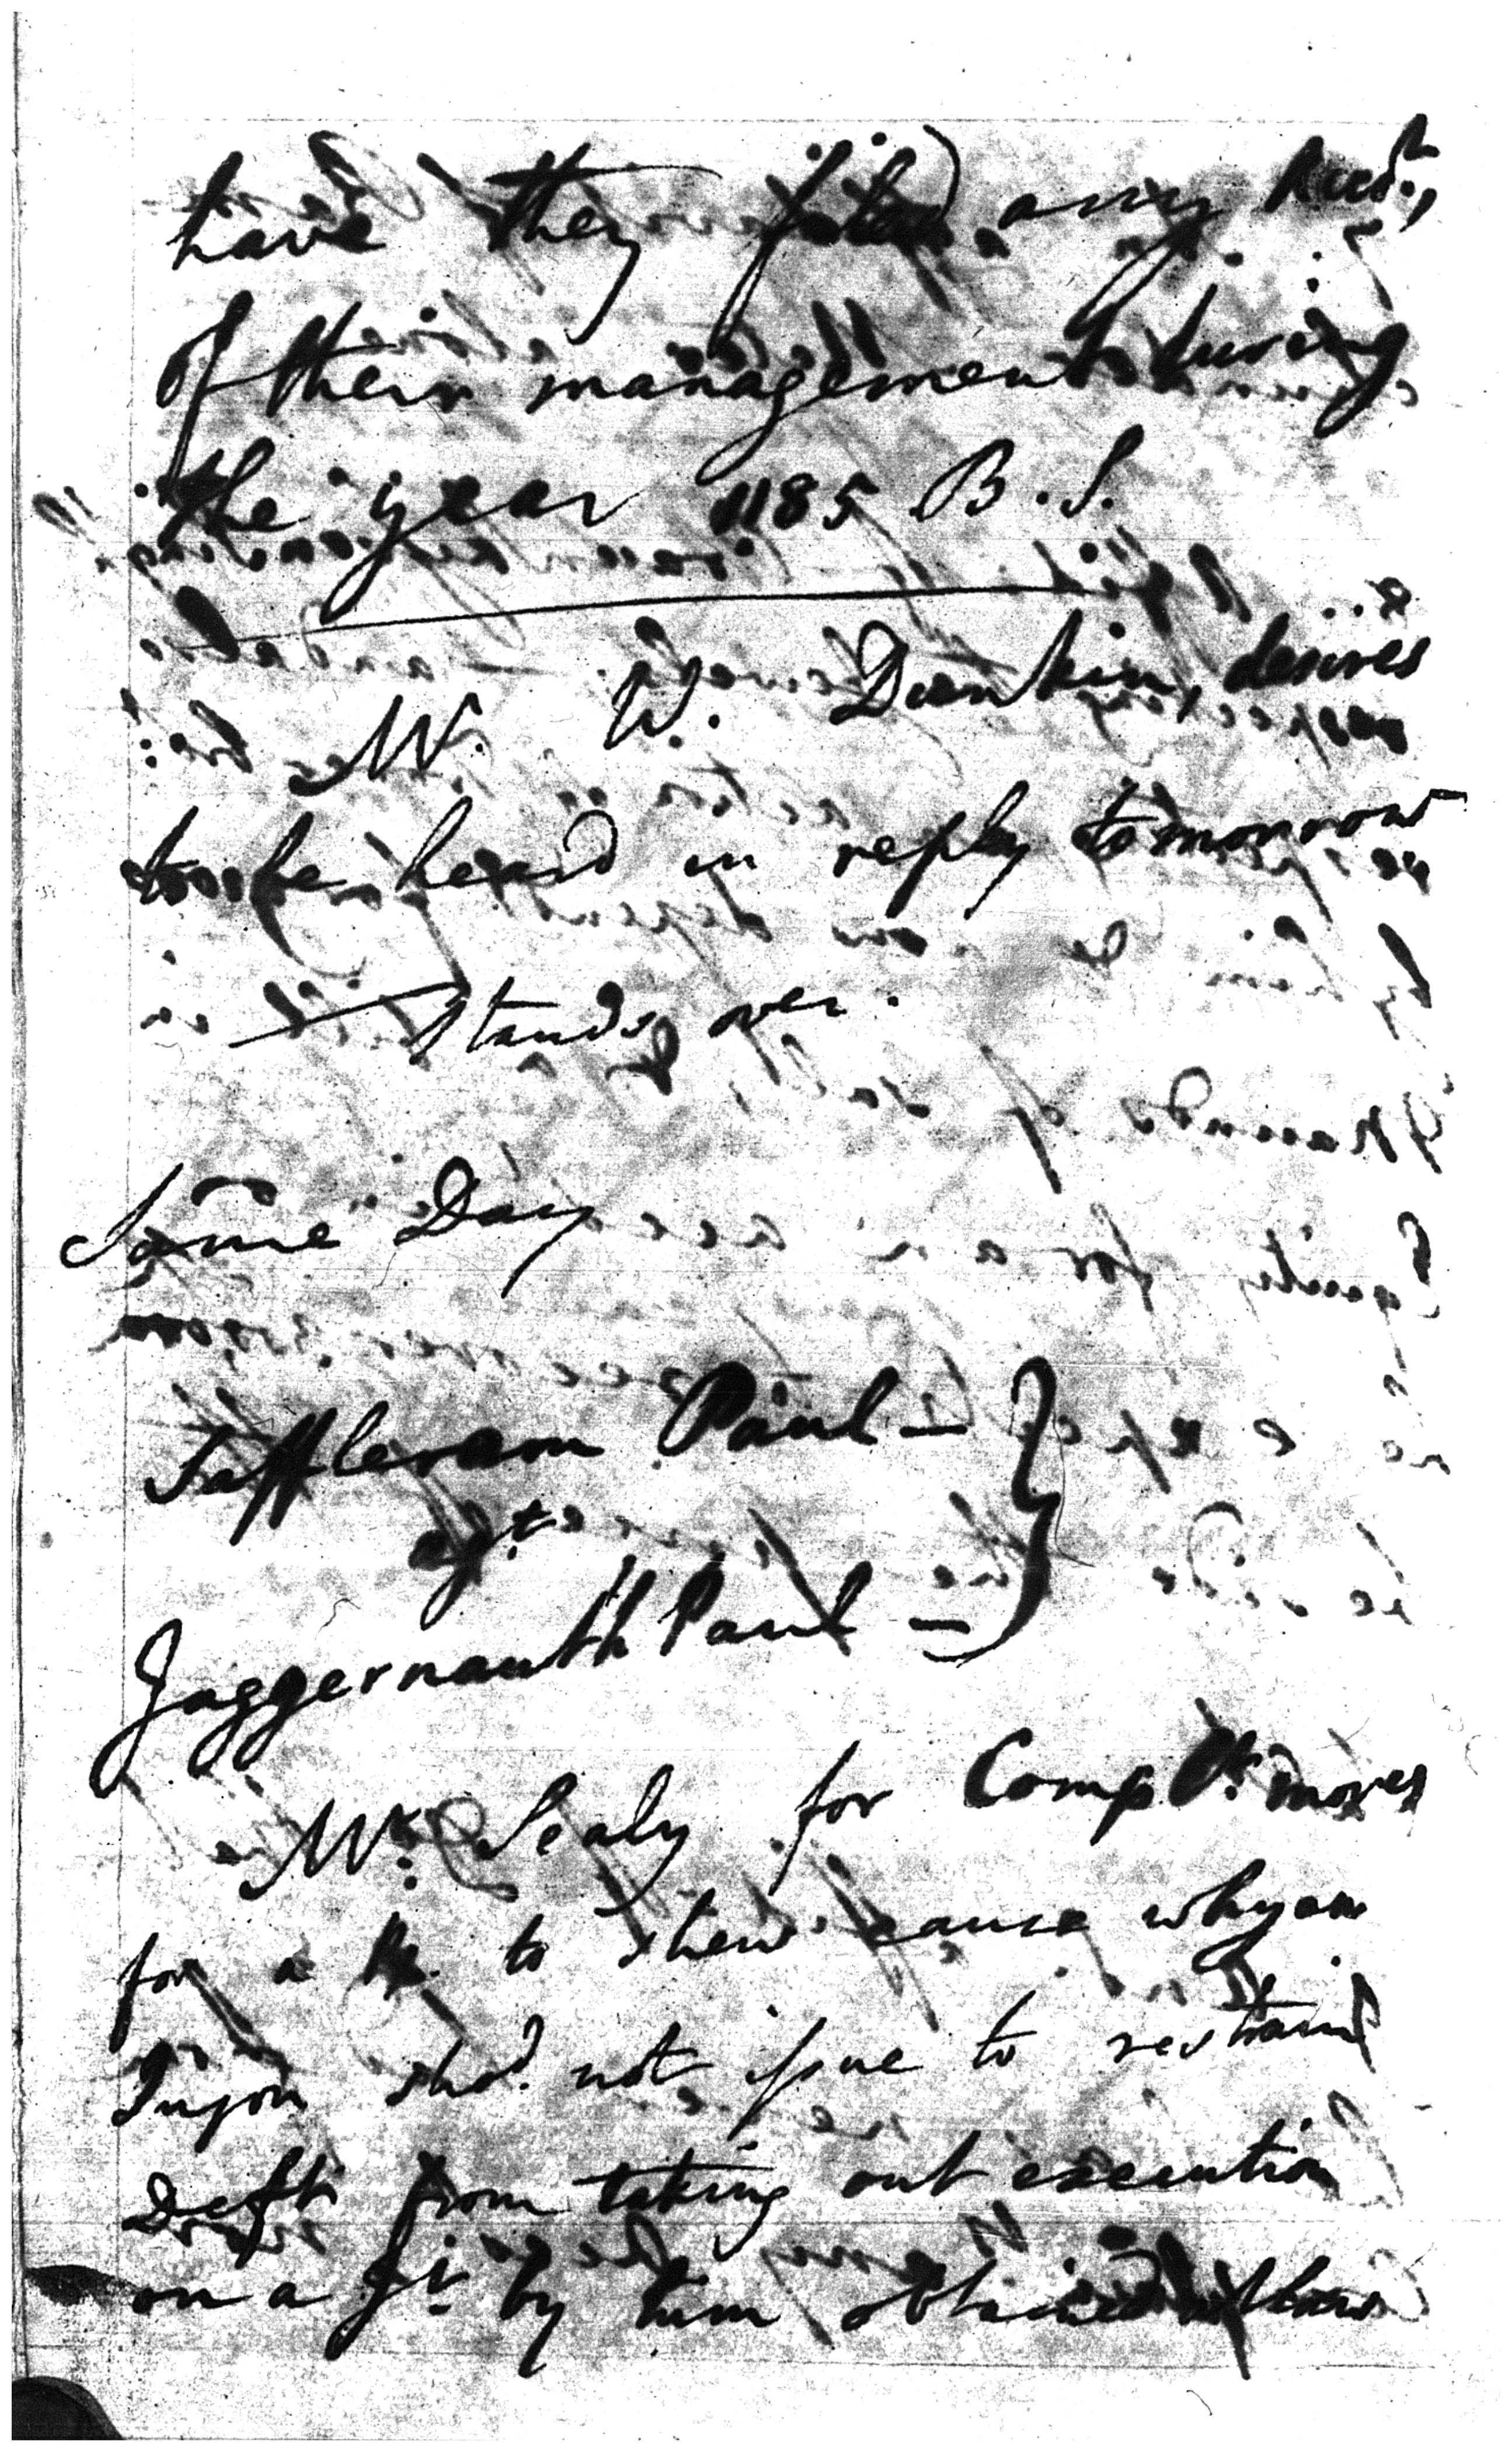 have they filed any
of their management during
the year 1185 B.S.
Mr. W. Dunkin, desires
to be heard in reply tomorrow
— Stands over.
Same Day
Suffleram Paul —
agt
Jaggernauth Paul —
Mr. Sealy for Complt. moves
for a to shew cause why an
Injon shd. not issue to restrain
Deft from taking out execution
on a Jt. by him obtained